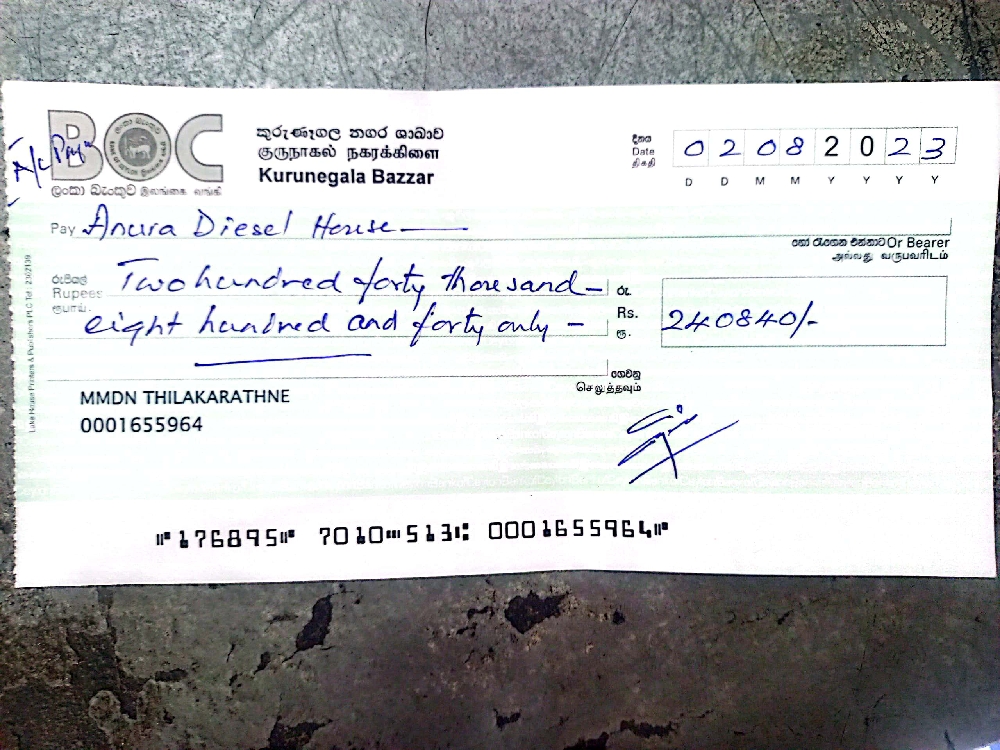 BOC
A/c Payee
ලංකා බැංකුව இலங்கை வங்கி
කුරුණෑගල නගර ශාඛාව
குருநாகல் நகரக்கிளை
Kurunegala Bazzar
දිනය
Date
திகதி
0 2 0 8 2 0 2 3
D D M M Y Y Y Y
Pay Anura Diesel House
හෝ රැගෙන එන්නාට Or Bearer
அல்லது வருபவரிடம்
රුපියල්
Rupees
ரூபாய்
Two hundred forty thousand -
eight hundred and forty only -
රු.
Rs.
ரூ.
240840/-
ගෙවනු
செலுத்தவும்
MMDN THILAKARATHNE
0001655964
Lake House Printers & Publishers PLC Tel : 2302139
⑈176895⑈ 7010⑉513⑆ 0001655964⑈